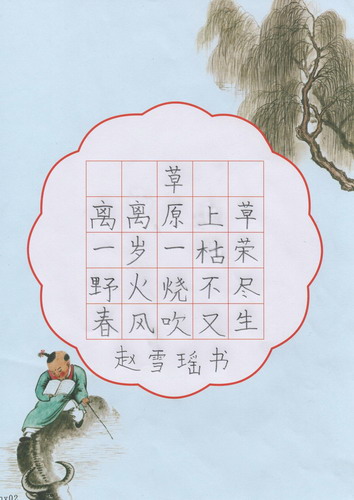 草
离离原上草
一岁一枯荣
野火烧不尽
春风吹又生
赵雪瑶书